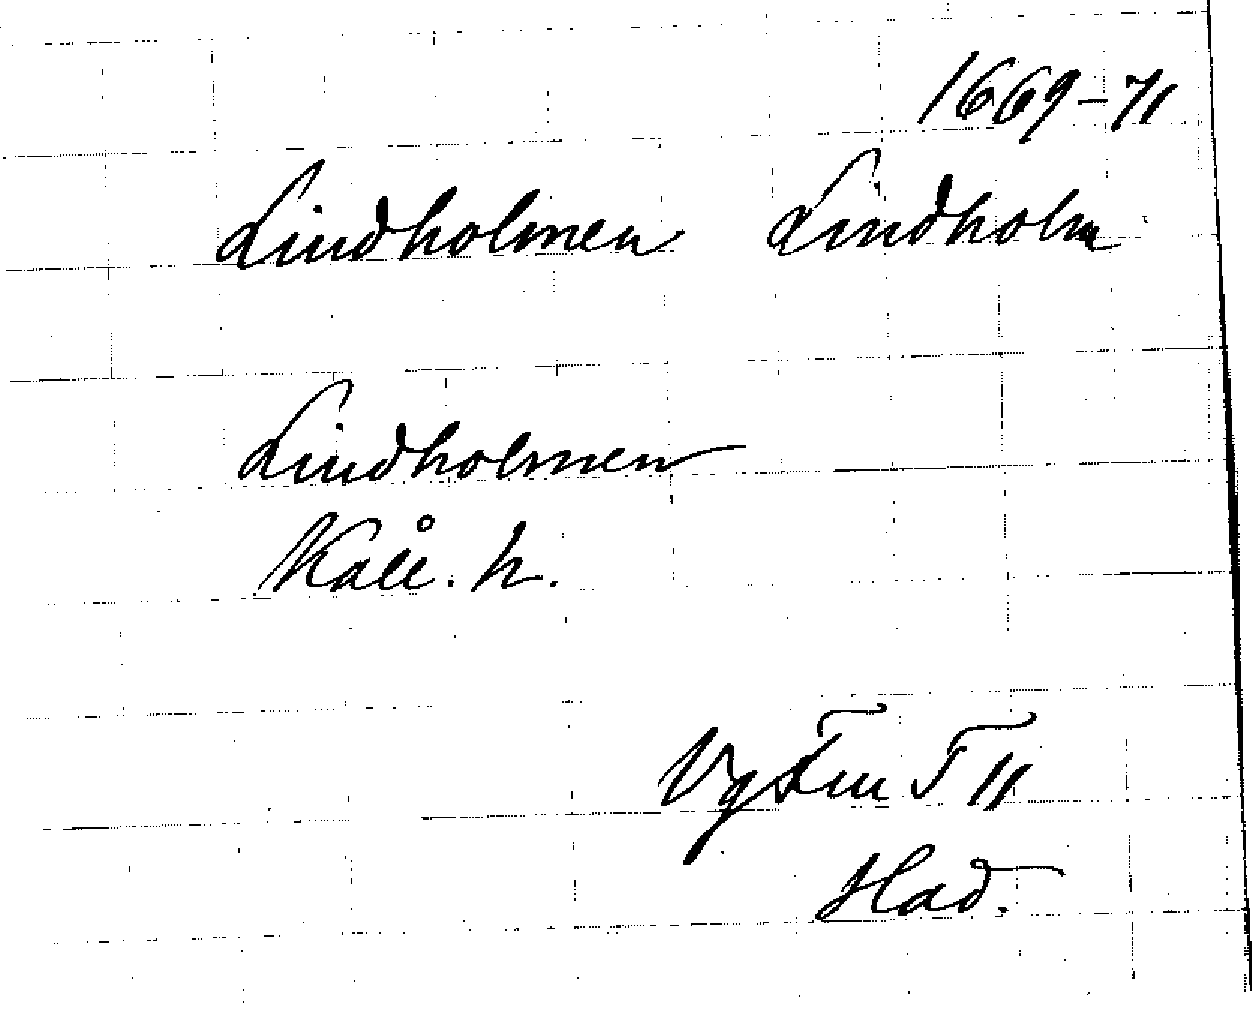 1669-71
Lindholmen Lindholm
Lindholmen
Kåll. h.
Vg Fnn F 11
Had.